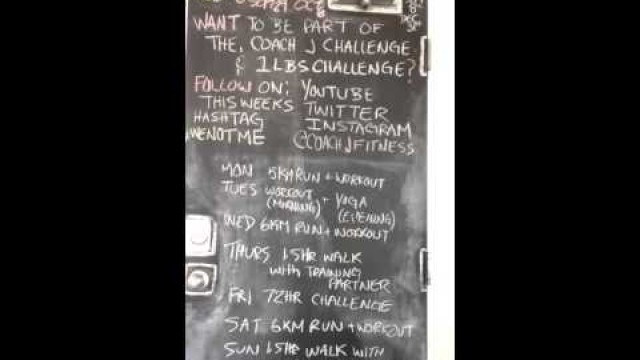 WANT TO BE PART OF
THE, COACH J CHALLENGE
& 1LBS CHALLENGE?
FOLLOW ON: YOUTUBE
THIS WEEKS TWITTER
HASHTAG INSTAGRAM
WENOTME @COACHJFITNESS
MON 5KM RUN + WORKOUT
TUES WORKOUT (MORNING) + YOGA (EVENING)
WED 6KM RUN + WORKOUT
THURS 1.5HR WALK
with TRAINING
PARTNER
FRI 72HR CHALLENGE
SAT 6KM RUN + WORKOUT
SUN 1.5HR WALK WITH